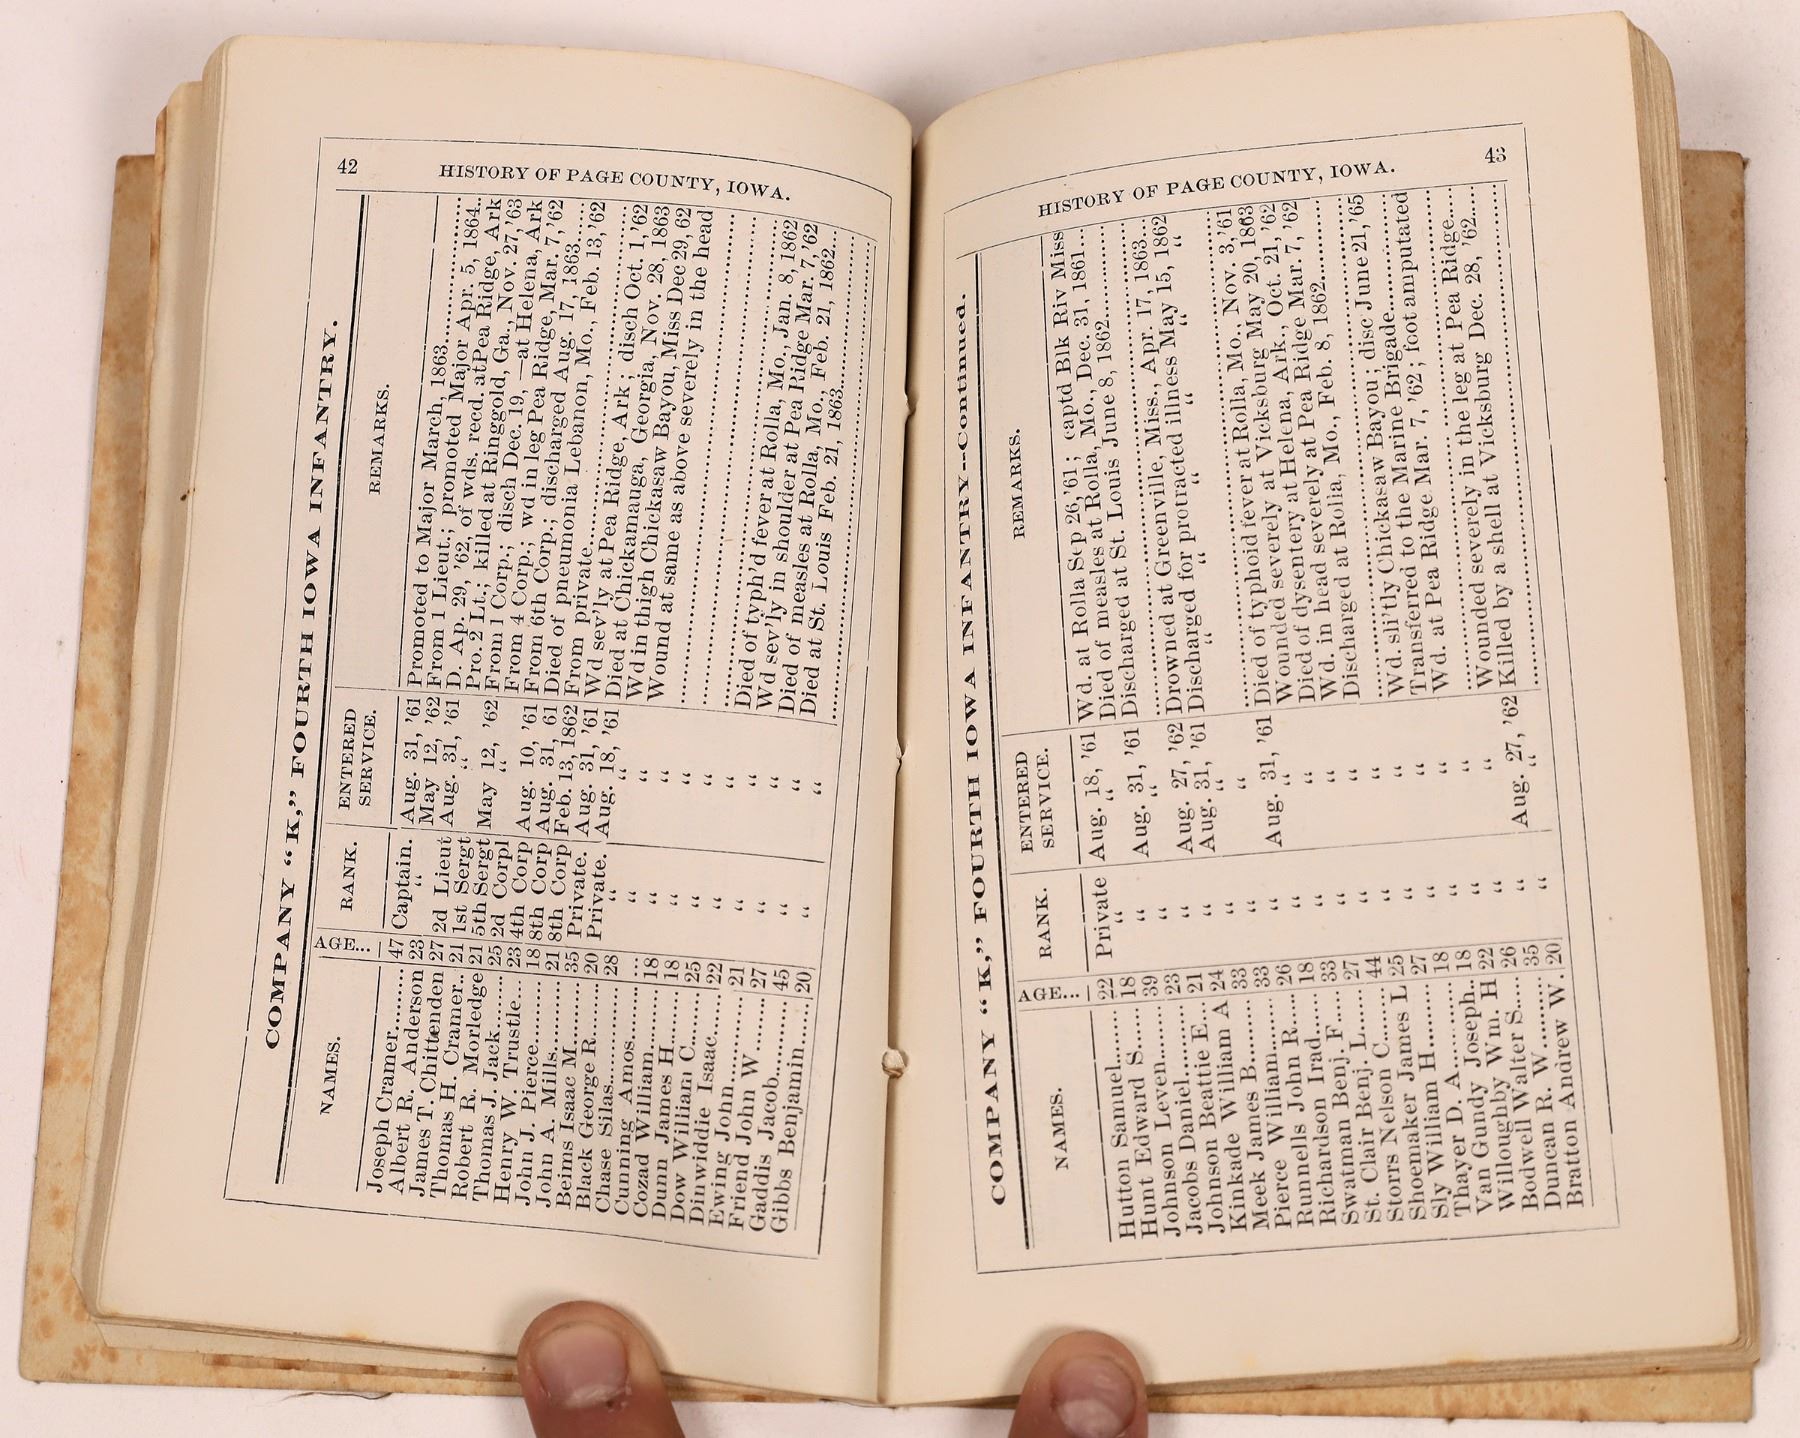 42 HISTORY OF PAGE COUNTY, IOWA.
COMPANY "K," FOURTH IOWA INFANTRY.
NAMES. AGE... RANK. ENTERED SERVICE. REMARKS.
Joseph Cramer........ 47 Captain. Aug. 31, '61 Promoted to Major March, 1863..............
Albert R. Anderson 23 " May 12, '62 From 1 Lieut.; promoted Major Apr. 5, 1864..
James T. Chittenden 27 2d Lieut Aug. 31, '61 D. Ap. 29, '62, of wds. recd. at Pea Ridge, Ark
Thomas H. Cramer.. 21 1st Sergt " Pro. 2 Lt.; killed at Ringgold, Ga., Nov. 27, '63
Robert R. Morledge 21 5th Sergt May 12, '62 From 1 Corp.; disch Dec. 19, —at Helena, Ark
Thomas J. Jack....... 25 2d Corpl " From 4 Corp.; wd in leg Pea Ridge, Mar. 7, '62
Henry W. Trustle... 23 4th Corp Aug. 10, '61 From 6th Corp.; discharged Aug. 17, 1863......
John J. Pierce......... 18 8th Corp Aug. 31, 61 Died of pneumonia Lebanon, Mo., Feb. 13, '62
John A. Mills......... 21 8th Corp Feb. 13, 1862 From private..............
Beims Isaac M........ 35 Private. Aug. 31, '61 Wd sev'ly at Pea Ridge, Ark; disch Oct. 1, '62
Black George R....... 20 Private. Aug. 18, '61 Died at Chickamauga, Georgia, Nov. 28, 1863
Chase Silas............ 28 " " Wd in thigh Chickasaw Bayou, Miss Dec 29, 62
Cunning Amos....... ... " " Wound at same as above severely in the head
Cozad William........ 18 " " ..............
Dunn James H....... 18 " " ..............
Dow William C....... 25 " " ..............
Dinwiddie Isaac...... 22 " " Died of typh'd fever at Rolla, Mo., Jan. 8, 1862
Ewing John........... 21 " " Wd sev'ly in shoulder at Pea Ridge Mar. 7, '62
Friend John W....... 27 " " Died of measles at Rolla, Mo., Feb. 21, 1862....
Gaddis Jacob.......... 45 " " Died at St. Louis Feb. 21, 1863..............
Gibbs Benjamin...... 20 " " ..............
HISTORY OF PAGE COUNTY, IOWA. 43
COMPANY "K," FOURTH IOWA INFANTRY--Continued.
NAMES. AGE... RANK. ENTERED SERVICE. REMARKS.
Hutton Samuel........ 22 Private Aug. 18, '61 Wd. at Rolla Sep 26, '61; captd Blk Riv Miss
Hunt Edward S....... 18 " " Died of measles at Rolla, Mo., Dec. 31, 1861...
Johnson Leven........ 39 " Aug. 31, '61 Discharged at St. Louis June 8, 1862............
Jacobs Daniel......... 23 " " ..............
Johnson Beattie E... 21 " Aug. 27, '62 Drowned at Greenville, Miss., Apr. 17, 1863....
Kinkade William A 24 " Aug. 31, '61 Discharged for protracted illness May 15, 1862
Meek James B........ 33 " " " " " " "
Pierce William....... 33 " Aug. 31, '61 ..............
Runnells John R..... 26 " " Died of typhoid fever at Rolla, Mo., Nov. 3, '61
Richardson Irad...... 18 " " Wounded severely at Vicksburg May 20, 1863
Swatman Benj. F.... 33 " " Died of dysentery at Helena, Ark., Oct. 21, '62
St. Clair Benj. L...... 27 " " Wd. in head severely at Pea Ridge Mar. 7, '62
Storrs Nelson C....... 44 " " Discharged at Rolla, Mo., Feb. 8, 1862..........
Shoemaker James L 25 " " ..............
Sly William H........ 27 " " Wd. sli'tly Chickasaw Bayou; disc June 21, '65
Thayer D. A........... 18 " " Transferred to the Marine Brigade..............
Van Gundy Joseph.. 18 " " Wd. at Pea Ridge Mar. 7, '62; foot amputated
Willoughby Wm. H 22 " " ..............
Bodwell Walter S.... 26 " " Wounded severely in the leg at Pea Ridge.....
Duncan R. W.......... 35 " Aug. 27, '62 Killed by a shell at Vicksburg Dec. 28, '62.....
Bratton Andrew W. 20 " " ..............